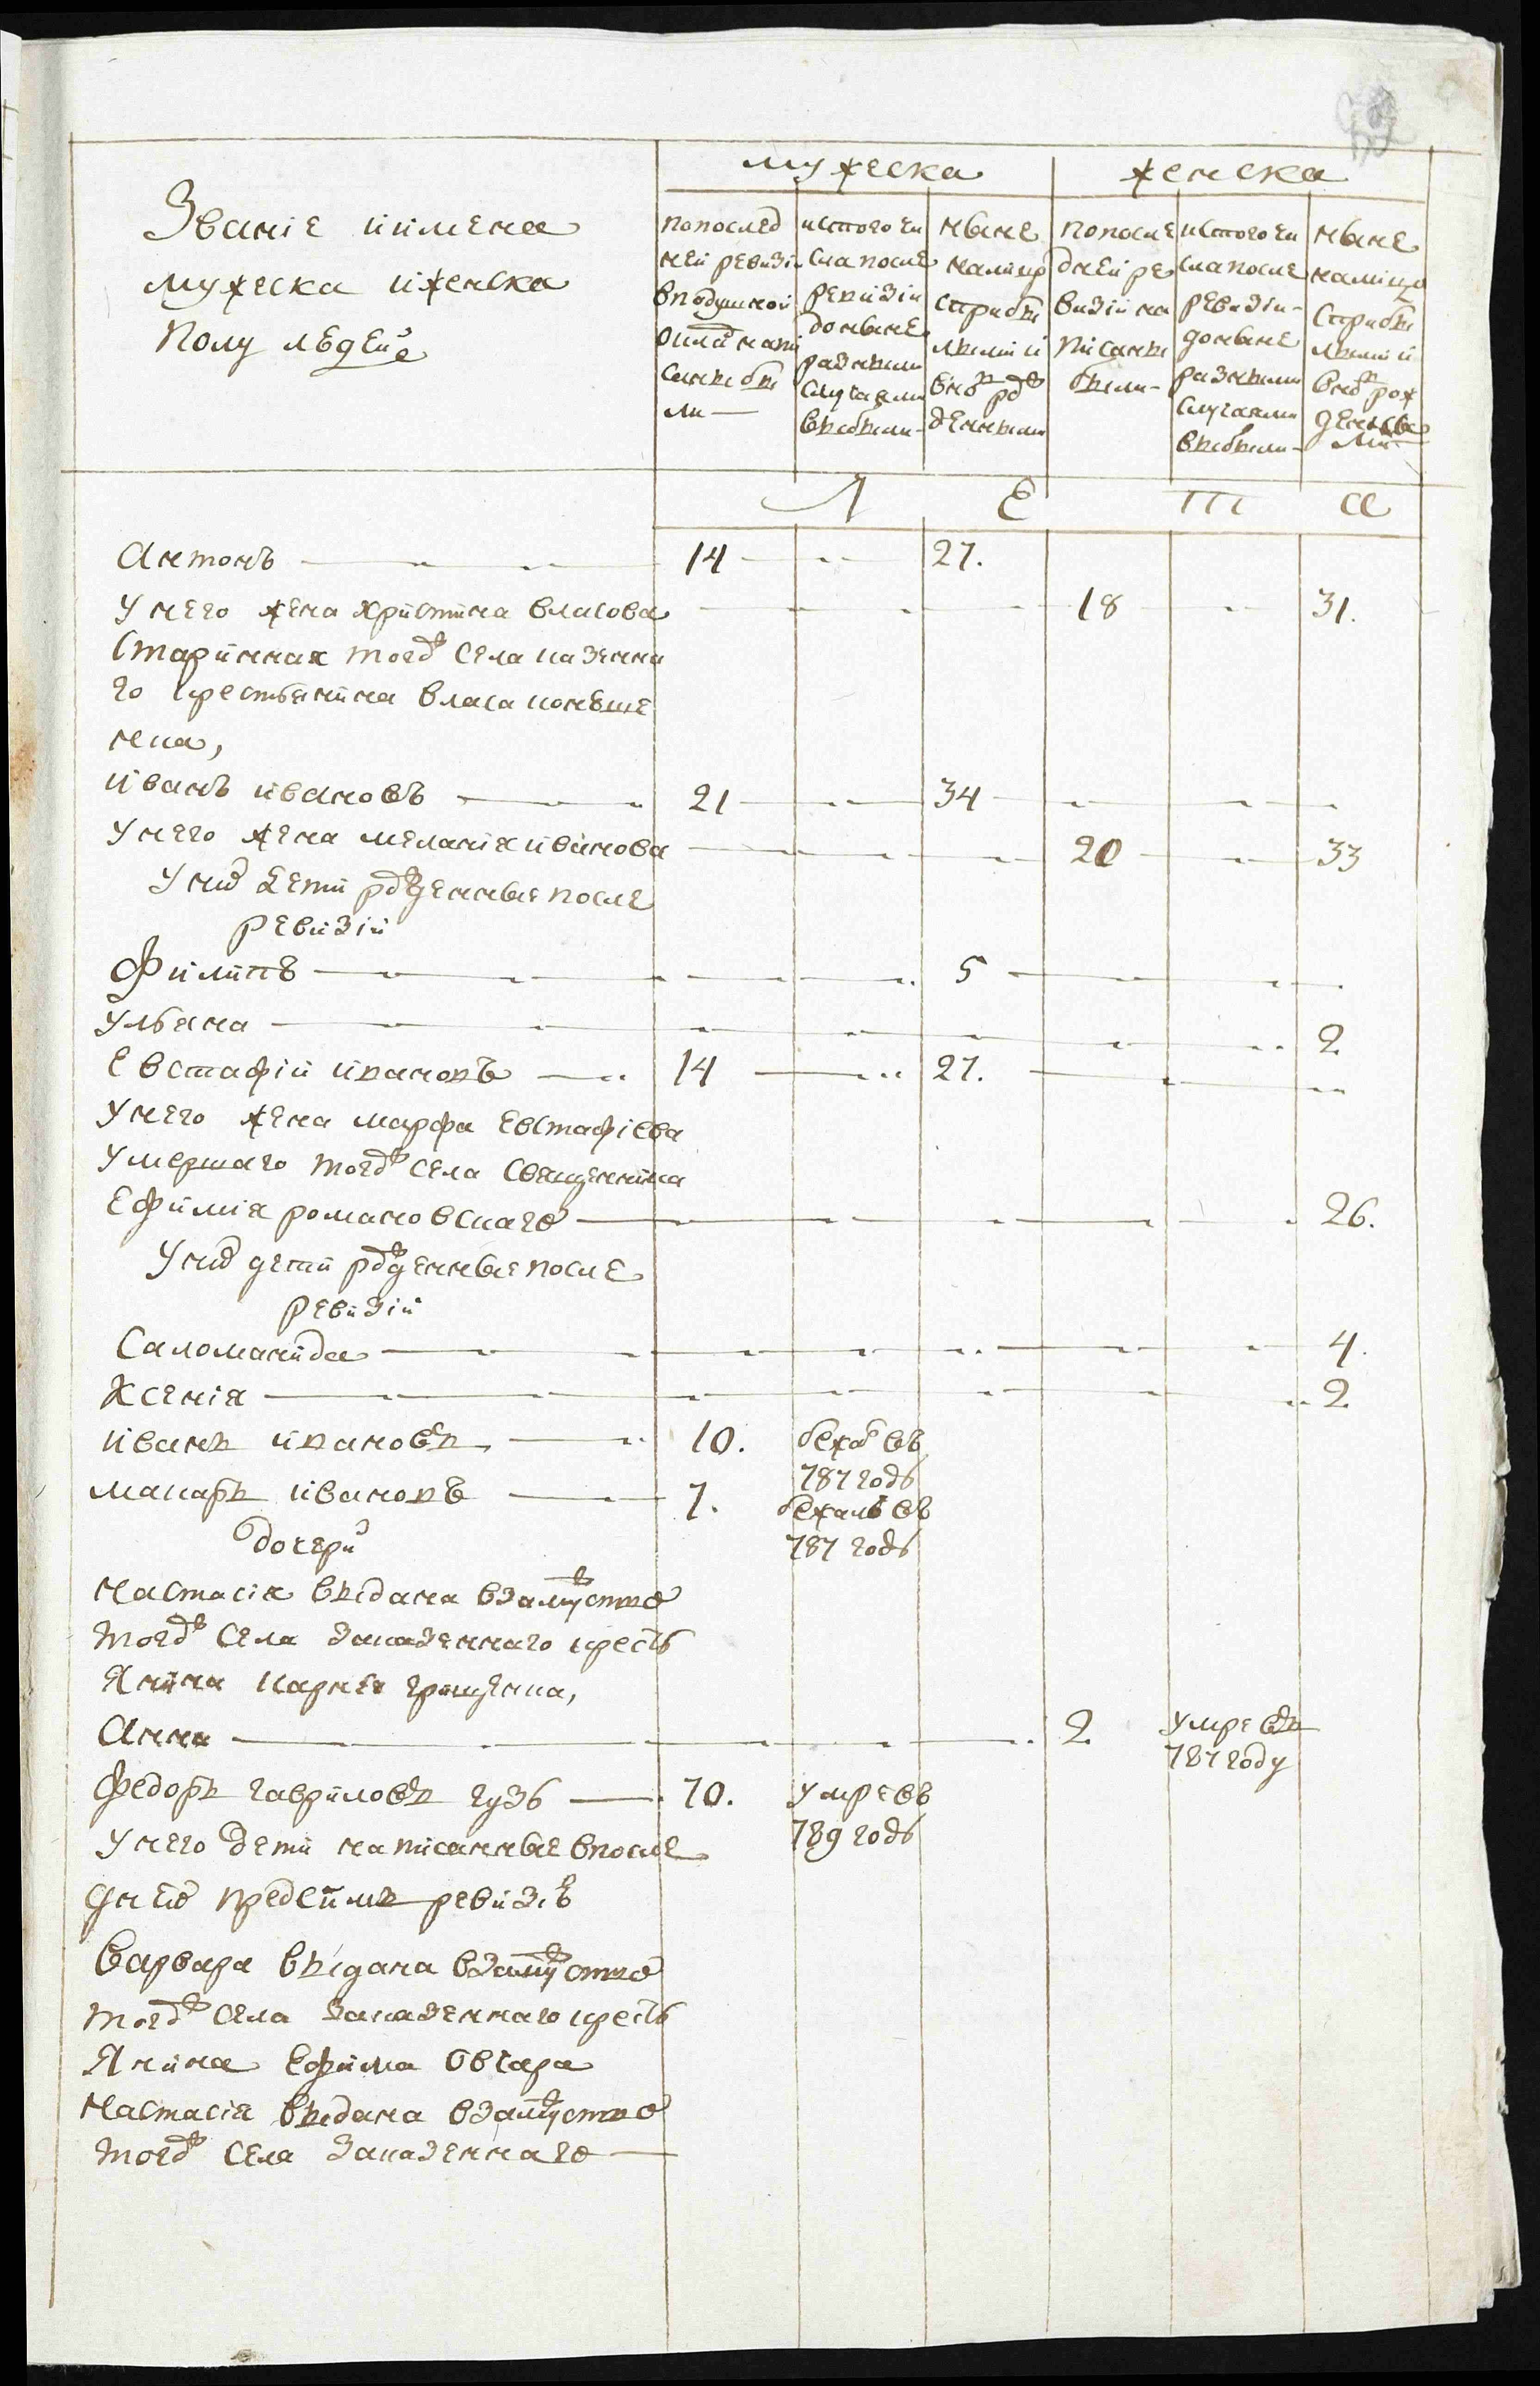 мужеска женска
Званіе иимена
мужеска иженска
полу людей
попослед
ней ревизі
вподушной
окладъ напи
саны бы
ли —
истого чи
сла после
ревизіи
донынѣ
разными
случаями
выбыли -
нынѣ
налицо
сприбы
лыми и
вновь рож
денными
попосле
дней ре
визіи на
писаны
были -
истого чи
сла после
ревизіи -
донынѣ
разными
случаями
выбыли -
нынѣ
налицо
сприбы
лыми и
вновь рож
денны
ми
Л Е Т А
Антонъ 14 27.
У него жена христина власова 18 31.
старинная тогожъ села казенна
го крестьянина власа
нка,
иванъ ивановъ 21 34
У него жена меланія иванова 20 33
У них дети рожденные после
ревизіи
Филипъ 5
Ульяна 2
Евстафій ивановъ 14 27.
У него жена марфа Евстафіева
умершаго тогожъ села священника
Ефимія романовскаго 26.
У них дети рожденные после
ревизіи
Саломанида 4.
Ксенія 2
иванъ ивановъ 10. бежалъ въ
787 годъ
макаръ ивановъ 7. бежалъ въ
787 годъ
дочери
Настасія выдана взамужство
тогожъ села заказеннаго кресть
янина карнея грищенка,
Анна 2 умре въ
787 году
федоръ гавриловъ гузь 70. умре въ
789 годъ
У него дети написанные впосле
дней предсимъ ревизіѣ
Варвара выдана взамужство
тогожъ села заказеннаго кресть
янина Ефима Овчара
Настасія выдана взамужство
тогожъ села заказеннаго